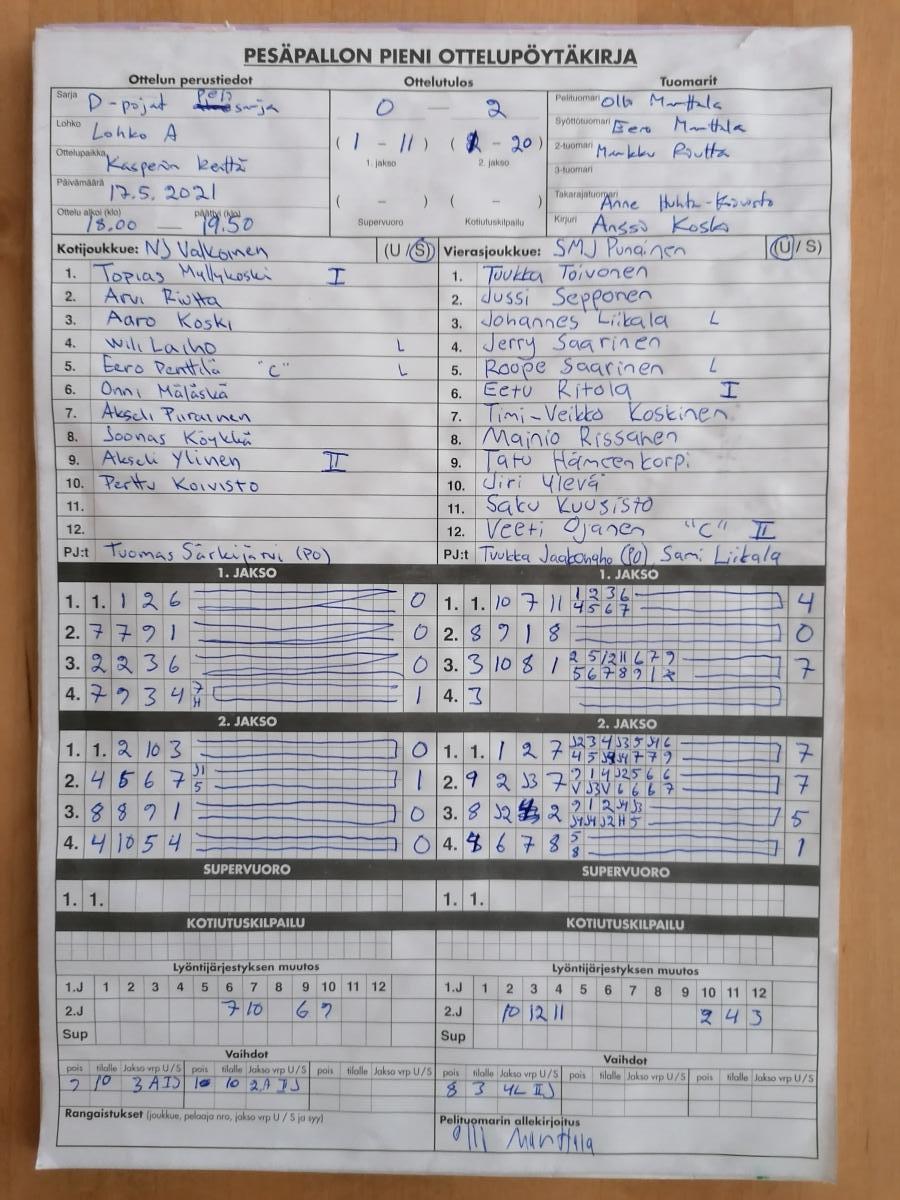 PESÄPALLON PIENI OTTELUPÖYTÄKIRJA
Ottelun perustiedot Ottelutulos Tuomarit
Sarja D-pojat sarja 0 — 2 Pelituomari Olli Manttala
Lohko Lohko A Syöttötuomari Eero Manttala
( 1 - 11 ) ( 2 - 20 )
1. jakso 2. jakso
Ottelupaikka Kasperin kenttä 2-tuomari Markku Riutta
3-tuomari
Päivämäärä 17.5. 2021 ( - ) ( - ) Takarajatuomari Anne Huhta-Koivisto
Ottelu alkoi (klo) 18.00 — päättyi (klo) 19.50 Supervuoro Kotiutuskilpailu Kirjuri Anssi Koski
Kotijoukkue: NJ Valkoinen (U / S) Vierasjoukkue: SMJ Punainen (U / S)
1. Topias Myllykoski I 1. Tuukka Toivonen
2. Arvi Riutta 2. Jussi Sepponen
3. Aaro Koski 3. Johannes Liikala L
4. Wili Laiho L 4. Jerry Saarinen
5. Eero Penttilä "C" L 5. Roope Saarinen L
6. Onni Mäläskä 6. Eetu Ritola I
7. Akseli Piirainen 7. Timi-Veikko Koskinen
8. Joonas Köykkä 8. Mainio Rissanen
9. Akseli Ylinen II 9. Tatu Hämeenkorpi
10. Perttu Koivisto 10. Jiri Ylevä
11. 11. Saku Kuusisto
12. 12. Veeti Ojanen "C" II
PJ:t Tuomas Särkijärvi (PO) PJ:t Tuukka (PO), Sami Liikala
1. JAKSO 1. JAKSO
1. 1. 1 2 6 0 1. 1. 10 7 11 1 2 3 6 4 5 6 7 4
2. 7 7 9 1 0 2. 8 9 1 8 0
3. 2 2 3 6 0 3. 3 10 8 1 2 5 12 11 6 7 9 5 6 7 8 9 1 2 7
4. 7 9 3 4 7 H 1 4. 3
2. JAKSO 2. JAKSO
1. 1. 2 10 3 0 1. 1. 1 2 7 J2 3 4 J3 5 J4 6 4 5 J4 7 7 9 7
2. 4 5 6 7 J1 5 1 2. 9 2 J3 7 9 1 4 J2 5 6 6 V J3 V 6 6 6 7 7
3. 8 8 9 1 0 3. 8 J2 2 9 1 2 J4 J3 J4 J4 J2 H 5 5
4. 4 10 5 4 0 4. 6 7 8 5 8 1
SUPERVUORO SUPERVUORO
1. 1. 1. 1.
KOTIUTUSKILPAILU KOTIUTUSKILPAILU
Lyöntijärjestyksen muutos Lyöntijärjestyksen muutos
1.J 1 2 3 4 5 6 7 8 9 10 11 12 1.J 1 2 3 4 5 6 7 8 9 10 11 12
2.J 7 10 6 9 2.J 10 12 11 2 4 3
Sup Sup
Vaihdot Vaihdot
pois tilalle Jakso vrp U / S pois tilalle Jakso vrp U / S pois tilalle Jakso vrp U / S pois tilalle Jakso vrp U / S pois tilalle Jakso vrp U / S pois tilalle Jakso vrp U / S
9 10 3A IJ 10 2A IJ 8 3 4L IJ
Rangaistukset (joukkue, pelaaja nro, jakso vrp U / S ja syy) Pelituomarin allekirjoitus
Olli Manttala